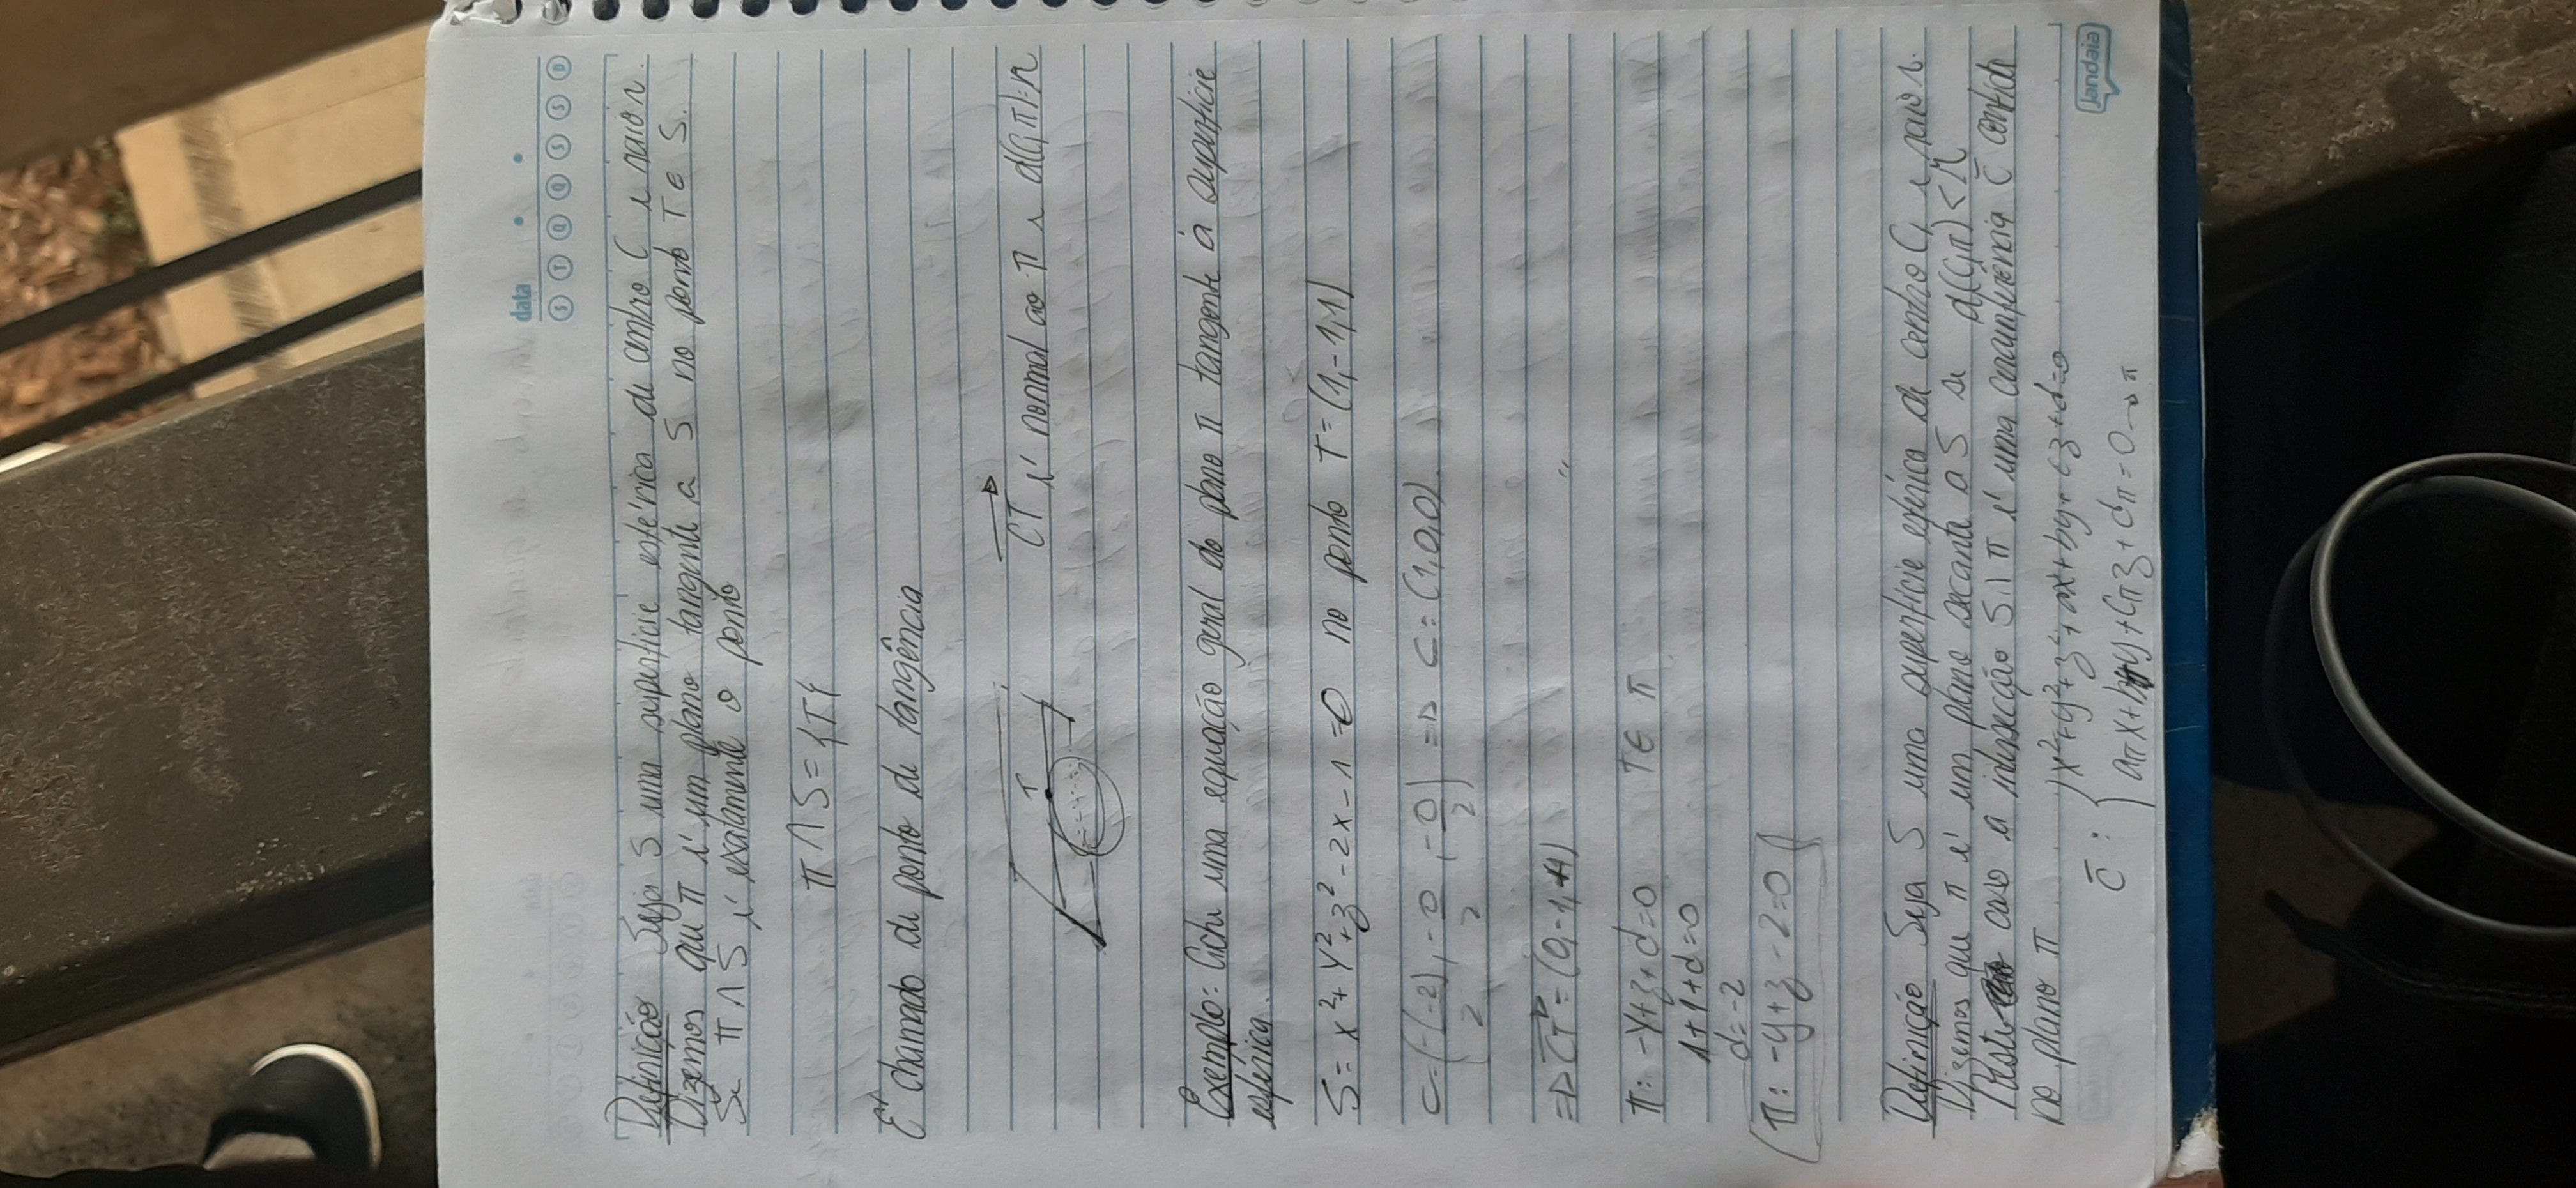 data
S T Q Q S S D
Definição Seja S uma superfície esférica de centro C e raio r.
Dizemos que π é um plano tangente a S no ponto T ∈ S.
Se π ∩ S é exatamente o ponto
π ∩ S = {T}
É chamado de ponto de tangência
T
CT é normal ao π e d(C, π) = r
Exemplo: Ache uma equação geral do plano π tangente à superfície
esférica.
S: x² + y² + z² - 2x - 1 = 0 no ponto T = (1, -1, 1)
C = (-(-2)/2, -0/2, -0/2) => C = (1, 0, 0)
=> CT = (0, -1, 1)
π: -y + z + d = 0 T ∈ π
1 + 1 + d = 0
d = -2
π: -y + z - 2 = 0
Definição Seja S uma superfície esférica de centro C, e raio r.
Dizemos que π é um plano secante a S se d(C, π) < r
Neste caso a interseção S ∩ π é uma circunferência C contida
no plano π
C : { x² + y² + z² + ax + by + cz + d = 0
aπx + bπy + cπz + dπ = 0 → π
Jandaia